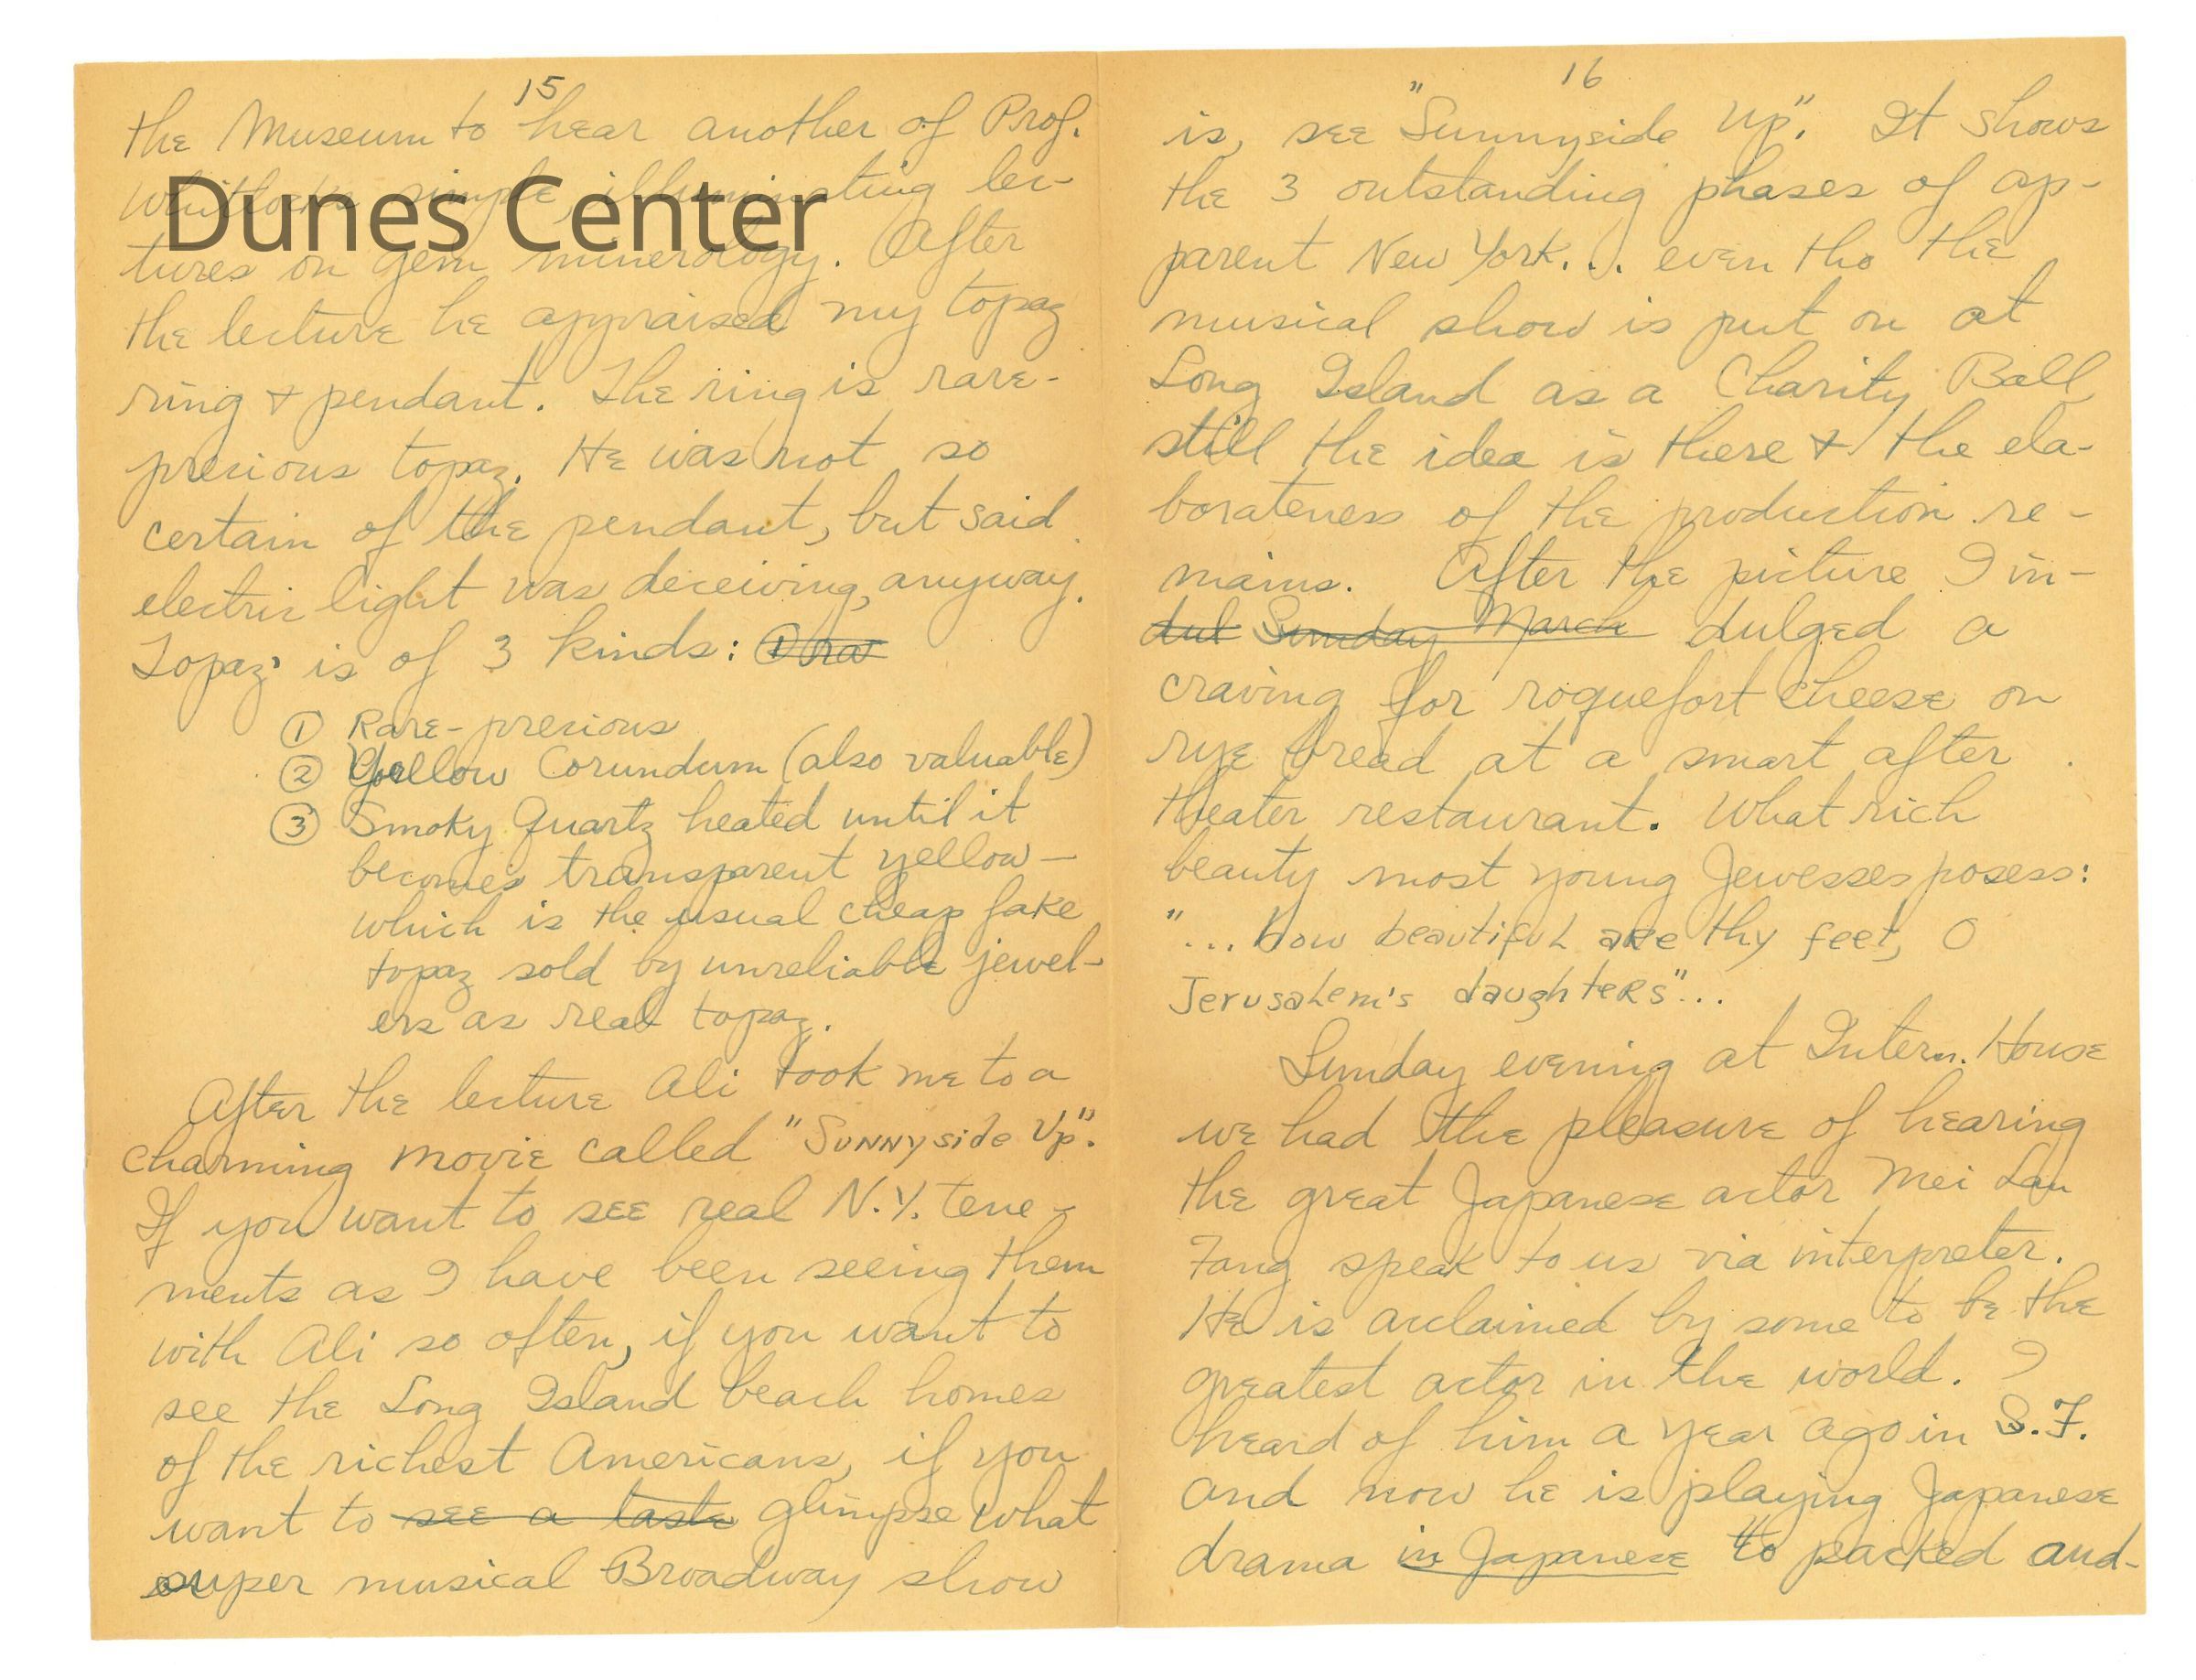 15
the Museum to hear another of Prof.
Whitlock's simple, illuminating lec-
Dunes Center
tures on gem minerology. After
the lecture he appraised my topaz
ring & pendant. The ring is rare-
precious topaz. He was not so
certain of the pendant, but said
electric light was deceiving, anyway.
Topaz is of 3 kinds:
① Rare-precious
② Yellow Corundum (also valuable)
③ Smoky Quartz heated until it
becomes transparent yellow—
which is the usual cheap fake
topaz sold by unreliable jewel-
ers as real topaz.
After the lecture Ali took me to a
charming movie called "Sunnyside Up".
If you want to see real N.Y. tene-
ments as I have been seeing them
with Ali so often, if you want to
see the Long Island beach homes
of the richest Americans, if you
want to see a taste glimpse what
super musical Broadway show
16
is, see "Sunnyside Up". It shows
the 3 outstanding phases of ap-
parent New York... even tho the
musical show is put on at
Long Island as a Charity Ball
still the idea is there & the ela-
borateness of the production re-
mains. After the picture I in-
dul Sunday March dulged a
craving for roquefort cheese on
rye bread at a smart after
theater restaurant. What rich
beauty most young Jewesses posess:
"... how beautiful are thy feet, O
Jerusalem's daughters"...
Sunday evening at Intern. House
we had the pleasure of hearing
the great Japanese actor Mei Lan
Fang speak to us via interpreter.
He is acclaimed by some to be the
greatest actor in the world. I
heard of him a year ago in S.F.
and now he is playing Japanese
drama in Japanese to packed aud-